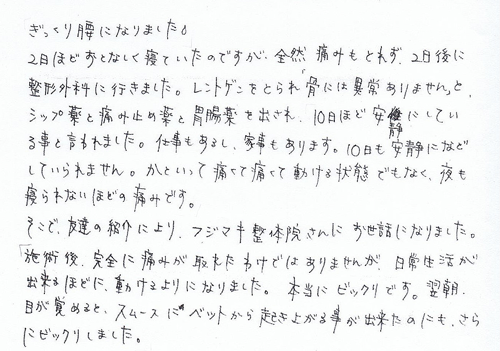 ぎっくり腰になりました。
2日ほどおとなしく寝ていたのですが、全然 痛みもとれず、2日後に
整形外科に行きました。レントゲンをとられ「骨には異常ありません」と、
シップ薬と痛み止め薬と胃腸薬を出され、10日ほど安静にしてい
る事と言われました。仕事もあるし、家事もあります。10日も安静になど
していられません。かといって痛くて痛くて動ける状態でもなく、夜も
寝られないほどの痛みです。
そこで、友達の紹介により、フジマキ整体院さんにお世話になりました。
「施術後、完全に痛みが取れたわけではありませんが、日常生活が
出来るほどに、動けるようになりました。本当にビックリです。翌朝、
目が覚めると、スムースにベットから起き上がる事が出来たのにも、さら
にビックリしました。